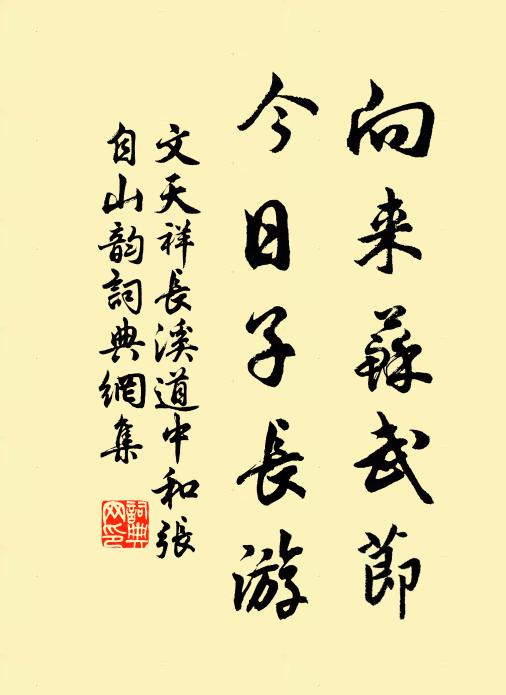 向来蘇武節
今日子長游
文天祥長溪道中和張
自山韵詞典網集
詞典網印